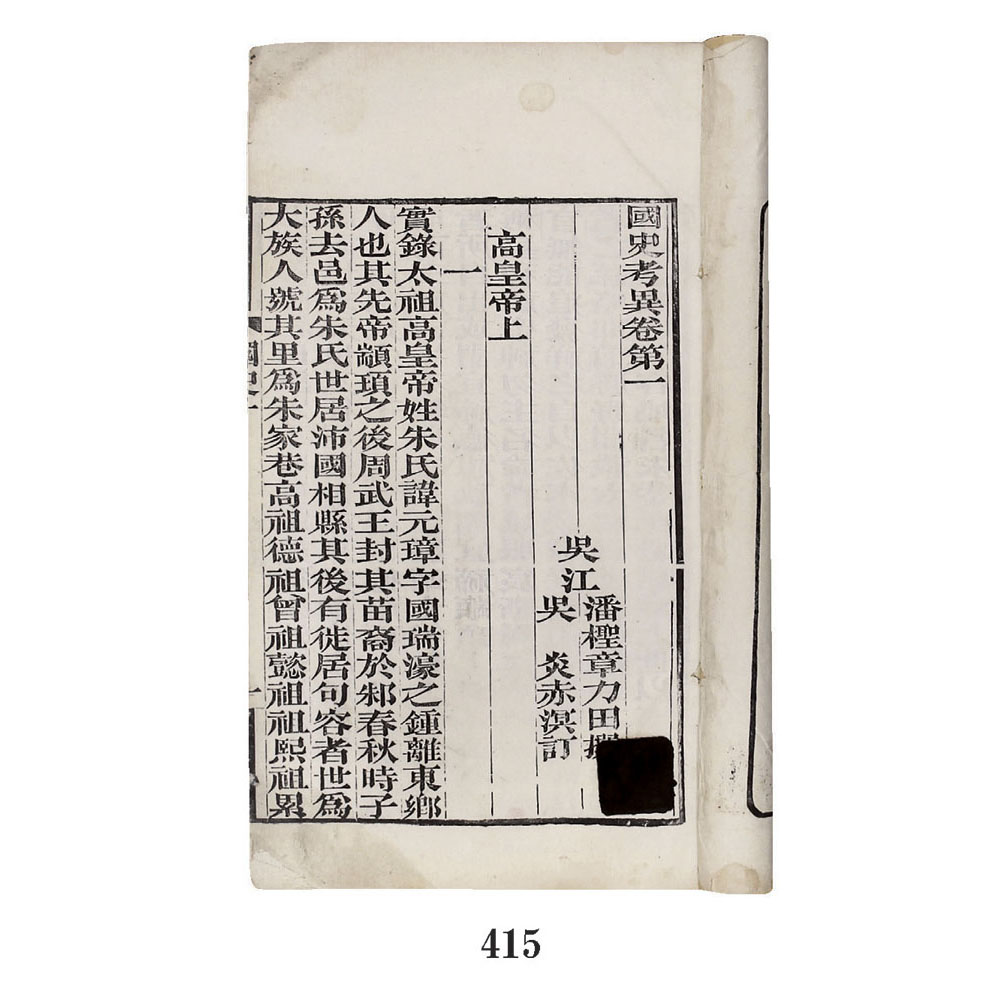 國史考異卷第一
吳江
潘檉章力田撰
吳 炎赤溟訂
高皇帝上
一
實錄太祖高皇帝姓朱氏諱元璋字國瑞濠之鍾離東鄉
人也其先帝顓頊之後周武王封其苗裔於邾春秋時子
孫去邑爲朱氏世居沛國相縣其後有徙居句容者世爲
大族人號其里爲朱家巷高祖德祖曾祖懿祖祖熙祖累
國史一
一
415